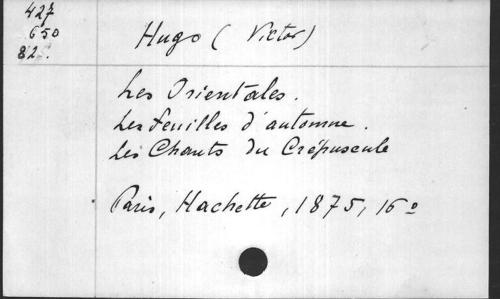 427
650
82.
Hugo (Victor)
Les Orientales.
Les feuilles d'automne.
Les Chants du Crépuscule
Paris, Hachette, 1875, 16º